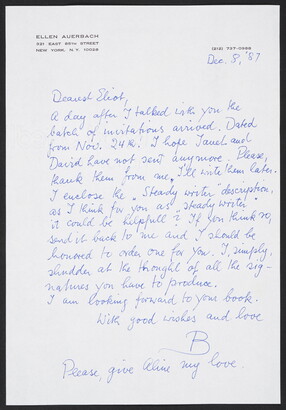 ELLEN AUERBACH
321 EAST 85TH STREET
NEW YORK, N.Y. 10028
(212) 737-0988
Dec. 8, '87
Dearest Eliot,
A day after I talked with you the
batch of invitations arrived. Dated
from Nov. 24th. I hope Janet and
David have not sent anymore. Please,
thank them from me, I'll write them later.
I enclose the "Steady writer" description,
as I think for you as "steady writer"
it could be helpfull? If you think so,
send it back to me and I should be
honored to order one for you. I, simply,
shudder at the thought of all the sig-
natures you have to produce.
I am looking forward to your book.
With good wishes and love
B
Please, give Aline my love.